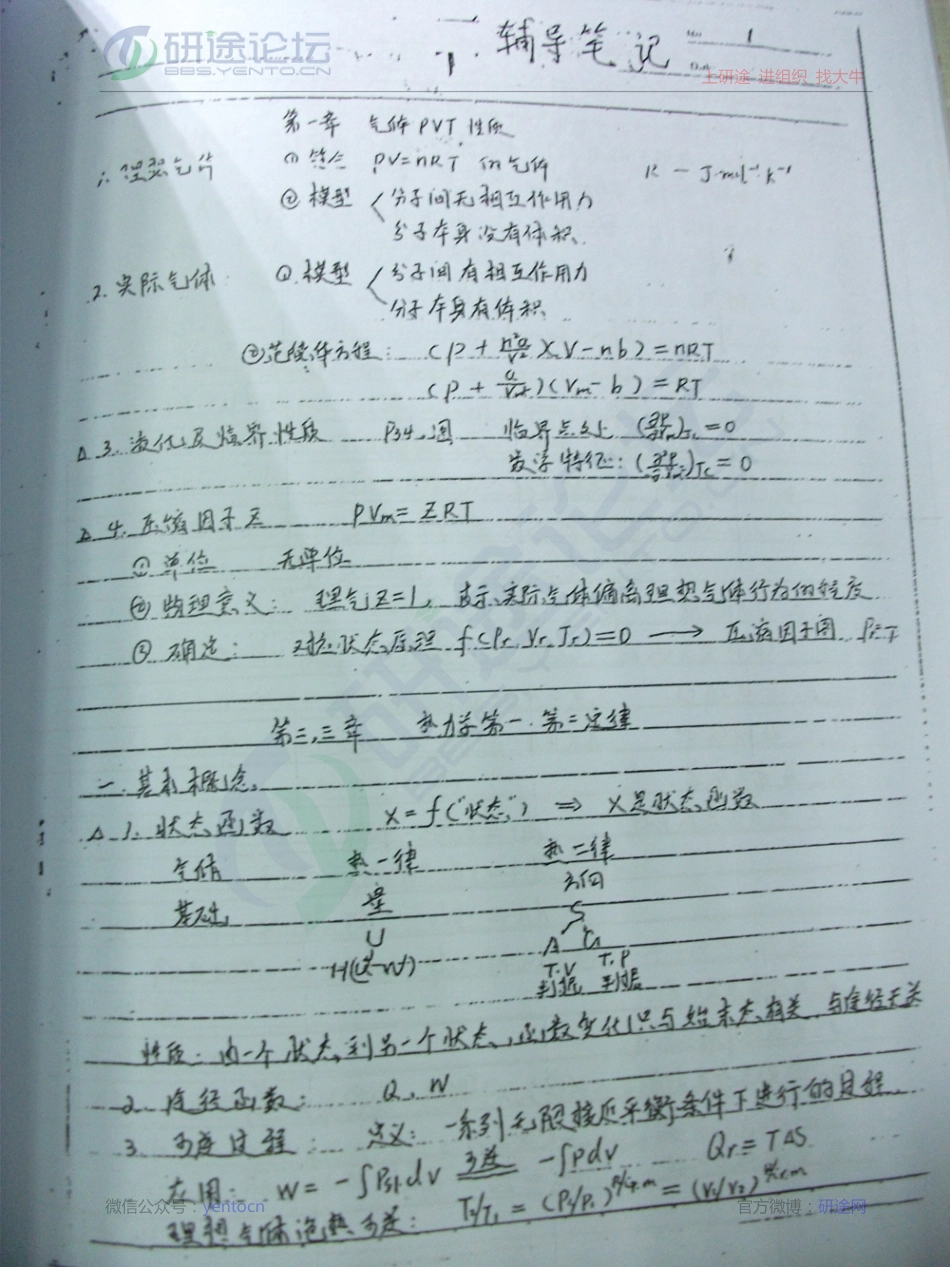 研途论坛
BBS.YENTO.CN
辅导笔记
No 1
上研途 进组织 找大牛
第一章 气体PVT性质
1. 理想气体 ① 符合 PV=nRT 的气体 R — J·mol⁻¹·K⁻¹
② 模型 分子间无相互作用力
分子本身没有体积
2. 实际气体 ① 模型 分子间有相互作用力
分子本身有体积
② 范德华方程: (P + n²a/V²)(V-nb)=nRT
(P + a/Vm²)(Vm-b)=RT
△ 3. 液化及临界性质 P34 图 临界点之上 (∂P/∂Vm)Tc=0
数学特征: (∂²P/∂Vm²)Tc=0
△ 4. 压缩因子Z PVm=ZRT
① 单位 无单位
② 物理意义: 理气Z=1, 表示实际气体偏离理想气体行为的程度
③ 确定: 对应状态原理 f(Pr, Vr, Tr)=0 → 压缩因子图
第二,三章 热力学第一.第二定律
一. 基本概念.
△ 1. 状态函数 X=f("状态") ⇒ X是状态函数
气体 热一律 热二律
基础 量 方向
U S
H A G
T.V T.P
判据 判据
性质: 由一个状态到另一个状态,函数变化只与始末态有关,与途径无关
2. 途径函数: Q、W
3. 可逆过程: 定义: 一系列无限接近平衡条件下进行的过程.
应用: W= -∫P外dV 可逆 -∫PdV Qr=TΔS
理想气体绝热可逆: T₂/T₁ = (P₂/P₁)^(R/Cp.m) = (V₁/V₂)^(R/Cv.m)
微信公众号:yentocn 官方微博:研途网